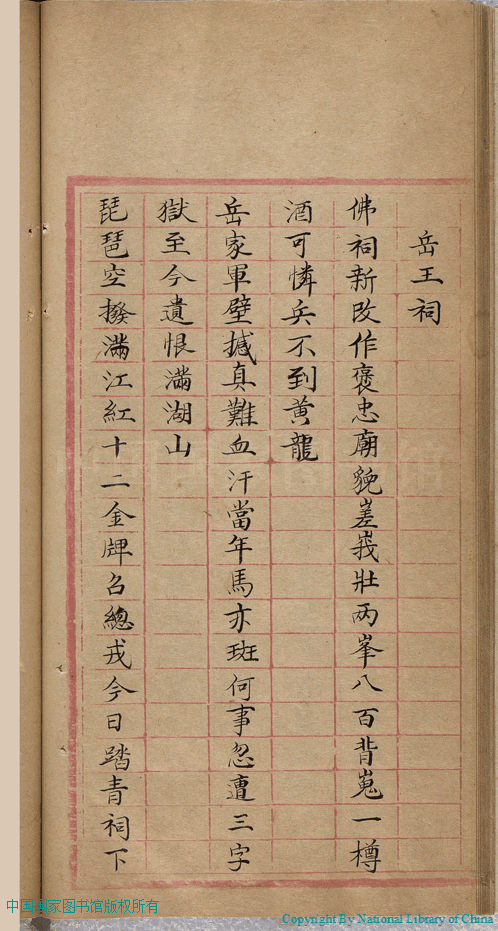 岳王祠
佛祠新改作褒忠廟貌嵳峩壯两峯八百背嵬一樽
酒可憐兵不到黄龍
岳家軍壁撼真難血汗當年馬亦斑何事忽遭三字
獄至今遺恨滿湖山
琵琶空撥滿江紅十二金牌召總戎今日踏青祠下
中国国家图书馆版权所有
Copyright By National Library of China